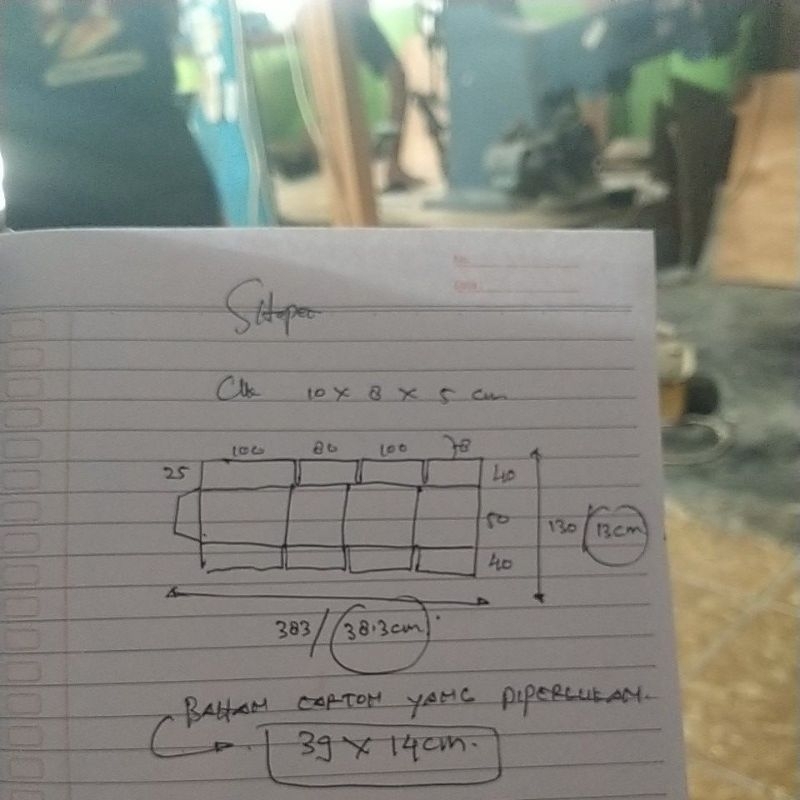 Shopee
Uk 10 x 8 x 5 cm
100 80 100 78
25 40
50 130 / 13cm
40
383 / 38.3cm
BAHAN CARTON YANG DIPERLUKAN.
39 x 14cm.